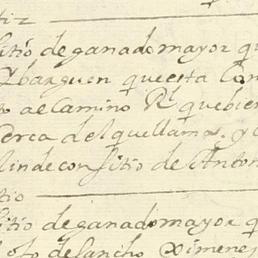 sitio de ganado mayor qu
Ybarguen que esta en
to al camino Rl que bien
erca del que llama. y
linde con sitio de Anton
tio
sitio de ganado mayor q
de sancho ximenes